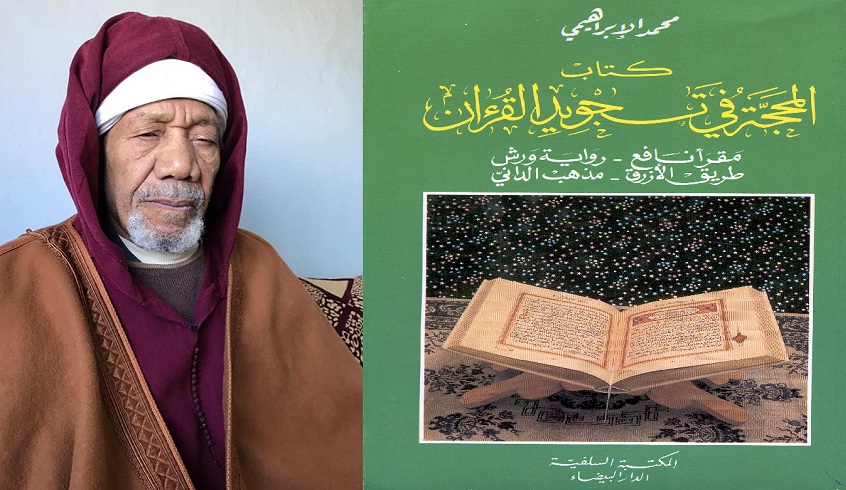 محمد الإبراهيمي
كتاب
المحجَّة في تجويد القُرءان
مقرأ نافع - رواية ورش
طريق الأزرق - مذهب الداني
المكتبة السلفية
الدار البيضاء